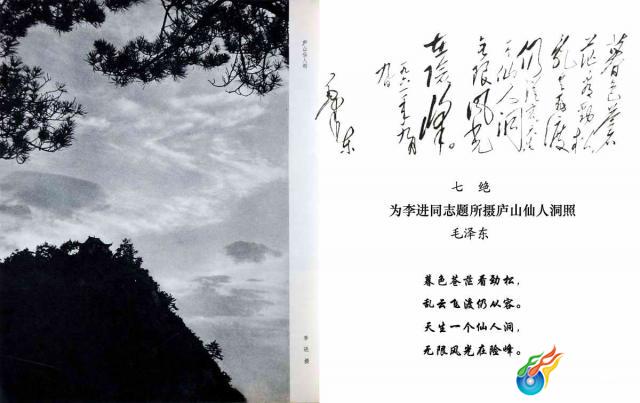 庐山仙人洞
李进 摄
暮色苍
茫看劲松
乱云飞渡
仙人洞
无限风光
在险峰。
一九六一年九月
九日
七 绝
为李进同志题所摄庐山仙人洞照
毛泽东
暮色苍茫看劲松，
乱云飞渡仍从容。
天生一个仙人洞，
无限风光在险峰。